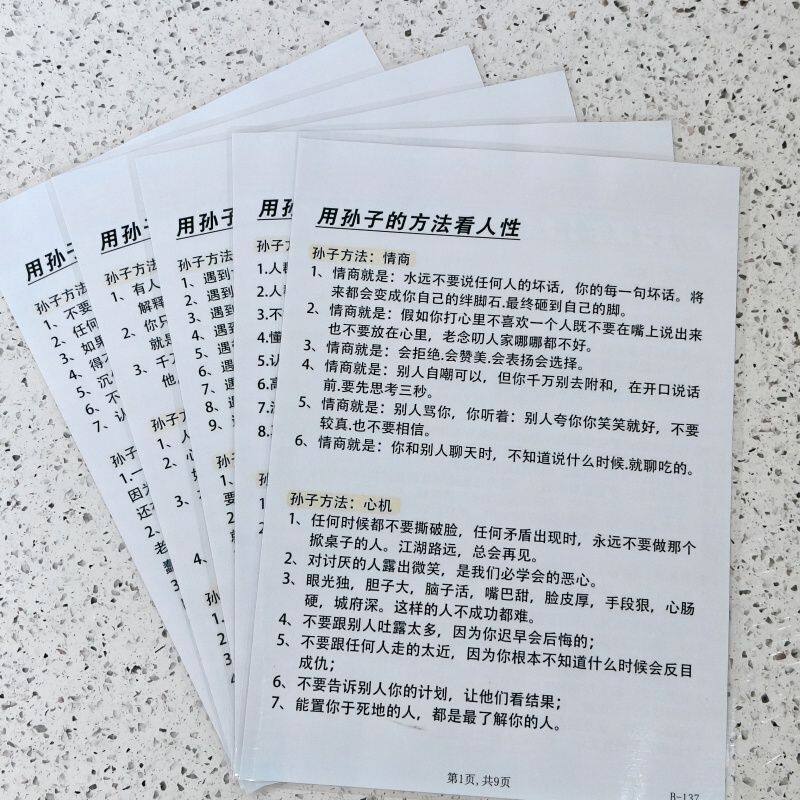 用孙子
孙子方法
1、不要
2、任何
3、如果
得不
5、沉
6、不
7、认
用孙子
孙子方法
1、有人
解释
2、你只
就是
3、千万
用孙子
孙子方法
1、遇到
2、遇到
3、遇到
4、遇到
用孙
孙子方法
1.人群
3.不
4.懂
5.认
6.高
用孙子的方法看人性
孙子方法：情商
1、情商就是：水远不要说任何人的坏话，你的每一句坏话。将
来都会变成你自己的绊脚石.最终砸到自己的脚。
2、情商就是：假如你打心里不喜欢一个人既不要在嘴上说出来
也不要放在心里，老念叨人家哪哪都不好。
3、情商就是：会拒绝.会赞美.会表扬会选择。
4、情商就是：别人自嘲可以，但你千万别去附和，在开口说话
前.要先思考三秒。
5、情商就是：别人骂你，你听着：别人夸你你笑笑就好，不要
较真.也不要相信。
6、情商就是：你和别人聊天时，不知道说什么时候.就聊吃的。
孙子方法：心机
1、任何时候都不要撕破脸，任何矛盾出现时，永远不要做那个
掀桌子的人。江湖路远，总会再见。
2、对讨厌的人露出微笑，是我们必学会的恶心。
3、眼光独，胆子大，脑子活，嘴巴甜，脸皮厚，手段狠，心肠
硬，城府深。这样的人不成功都难。
4、不要跟别人吐露太多，因为你迟早会后悔的；
5、不要跟任何人走的太近，因为你根本不知道什么时候会反目
成仇；
6、不要告诉别人你的计划，让他们看结果；
7、能置你于死地的人，都是最了解你的人。
第1页,共9页
B-137